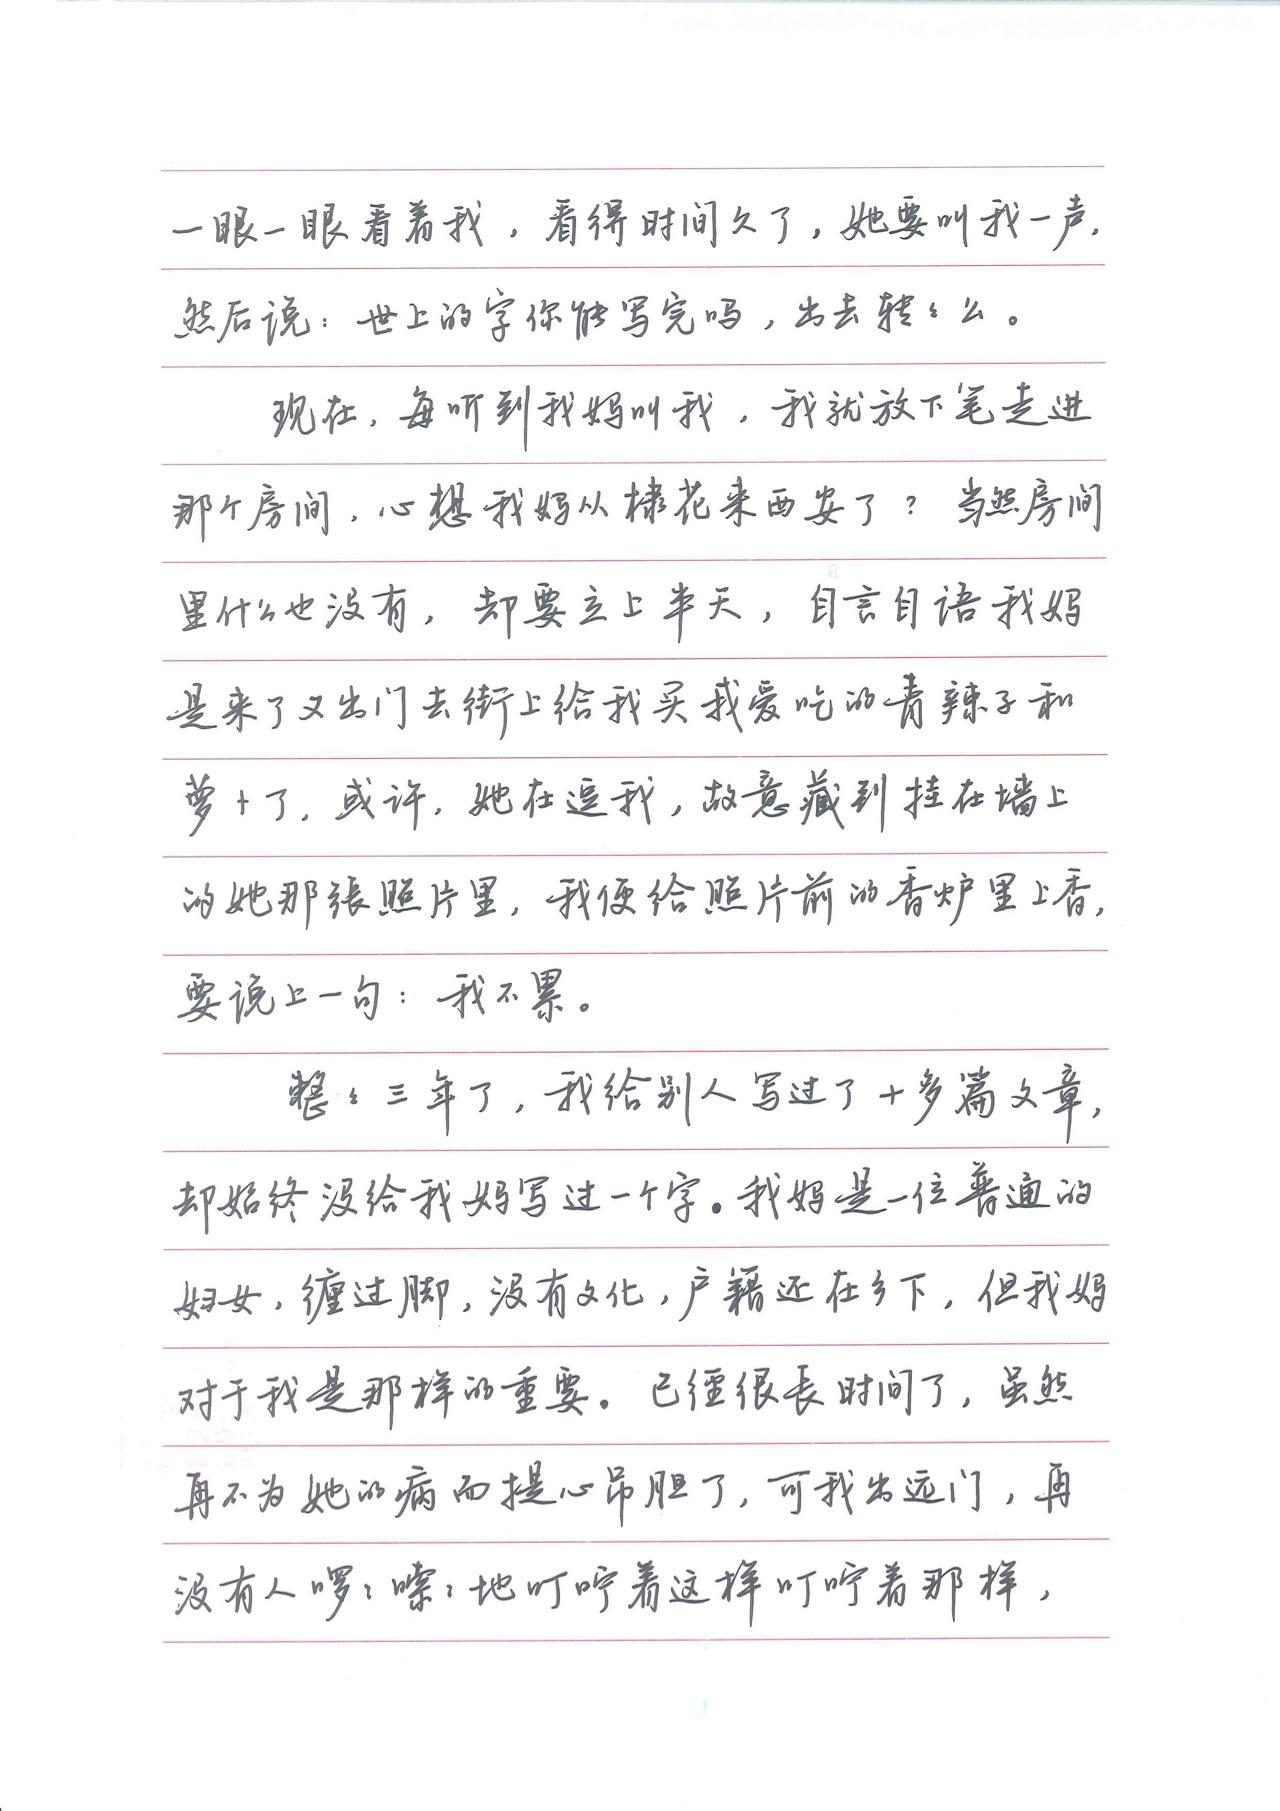 一眼一眼看着我，看得时间久了，她要叫我一声，
然后说：世上的字你能写完吗，出去转々么。
现在，每听到我妈叫我，我就放下笔走进
那个房间，心想我妈从棣花来西安了？当然房间
里什么也没有，却要立上半天，自言自语我妈
是来了又出门去街上给我买我爱吃的青辣子和
萝卜了，或许，她在逗我，故意藏到挂在墙上
的她那張照片里，我便给照片前的香炉里上香，
要说上一句：我不累。
整々三年了，我给别人写过了十多篇文章，
却始终没给我妈写过一个字。我妈是一位普通的
妇女，缠过脚，没有文化，户籍还在乡下，但我妈
对于我是那样的重要。已經很長时间了，虽然
再不为她的病而提心吊胆了，可我出远门，再
没有人啰々嗦々地叮咛着这样叮咛着那样，